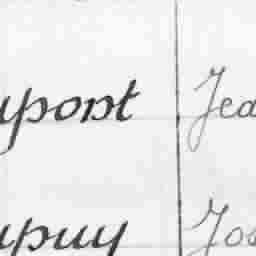 upont Jea
upuy Jos